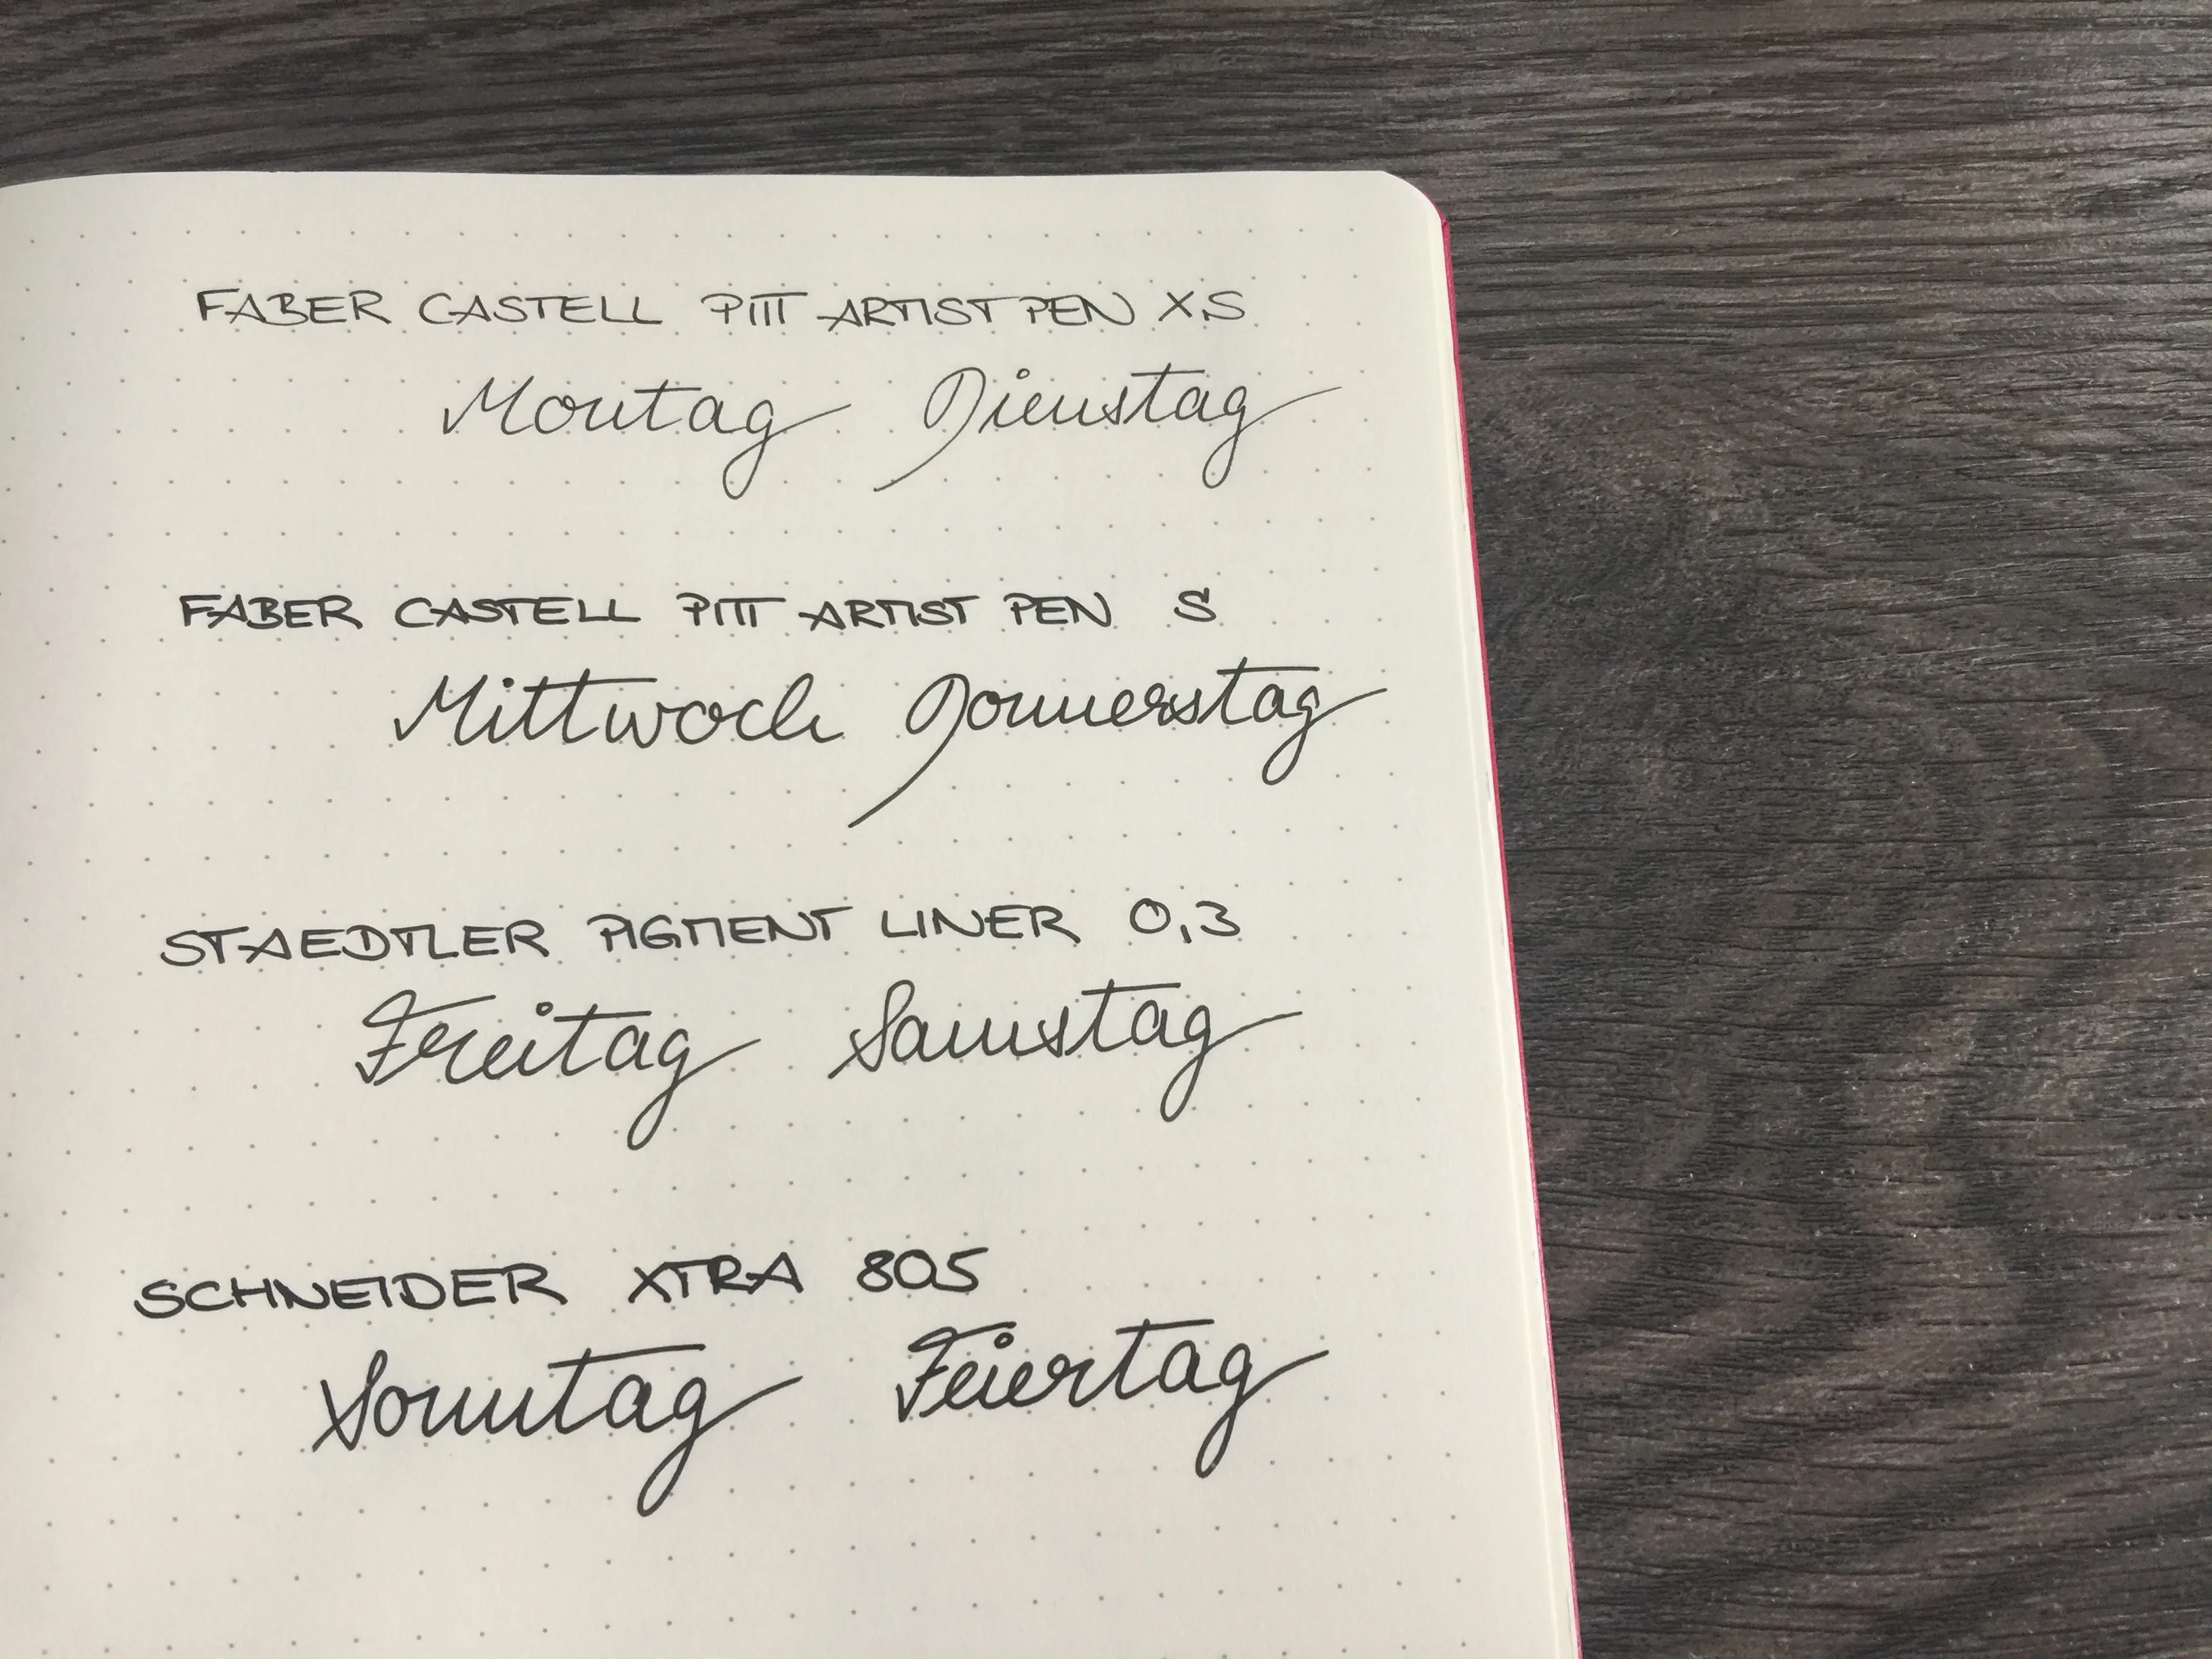 FABER CASTELL PITT ARTIST PEN XS
Montag Dienstag
FABER CASTELL PITT ARTIST PEN S
Mittwoch Donnerstag
STAEDTLER PIGMENT LINER 0,3
Freitag Samstag
SCHNEIDER XTRA 805
Sonntag Feiertag